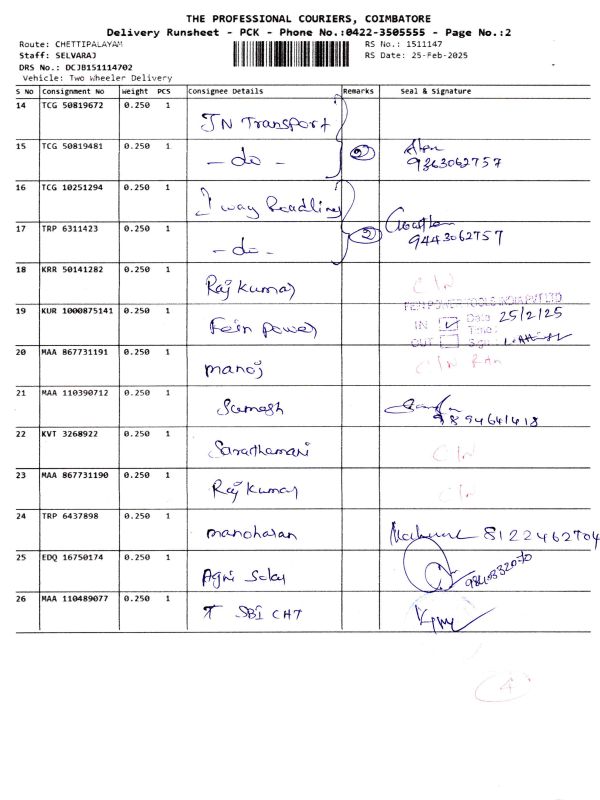 THE PROFESSIONAL COURIERS, COIMBATORE
Delivery Runsheet - PCK - Phone No.:0422-3505555 - Page No.:2
Route: CHETTIPALAYAM
Staff: SELVARAJ
DRS No.: DCJB151114702
Vehicle: Two Wheeler Delivery
RS No.: 1511147
RS Date: 25-Feb-2025
S No Consignment No Weight PCS Consignee Details Remarks Seal & Signature
14 TCG 50819672 0.250 1 JN Transport
15 TCG 50819481 0.250 1 - do - 2
9363062757
16 TCG 10251294 0.250 1 1 way Roadlines
17 TRP 6311423 0.250 1 - do - 2
9443062757
18 KRR 50141282 0.250 1 Raj Kumar C/W
19 KUR 1000875141 0.250 1 Fein power
FEIN POWER TOOLS INDIA PVT LTD
IN Date 25/2/25
Time:
OUT Sign:
20 MAA 867731191 0.250 1 manoj C/W
21 MAA 110390712 0.250 1 Sumesh
9894641418
22 KVT 3268922 0.250 1 Sarathamani C/W
23 MAA 867731190 0.250 1 Raj Kumar C/W
24 TRP 6437898 0.250 1 manoharan 8122462704
25 EDQ 16750174 0.250 1 Agni
26 MAA 110489077 0.250 1 T SBI CHT
4